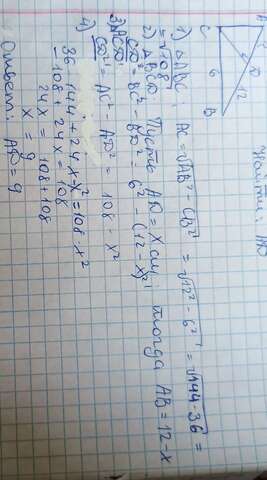 Найти: AD
A
C
D
B
6
12
1) △ABC, AC = √AB² - CB² = √12² - 6² = √144 - 36 =
= √108
2) △BCD: Пусть AD = x см, тогда AB = 12 - x
CD² = BC² - BD² = 6² - (12 - x)²
3) △ACD:
CD² = AC² - AD² = 108 - x²
4) 36 - 144 + 24x - x² = 108 - x²
-108 + 24x = 108
24x = 108 + 108
x = 9
Ответ: AD = 9